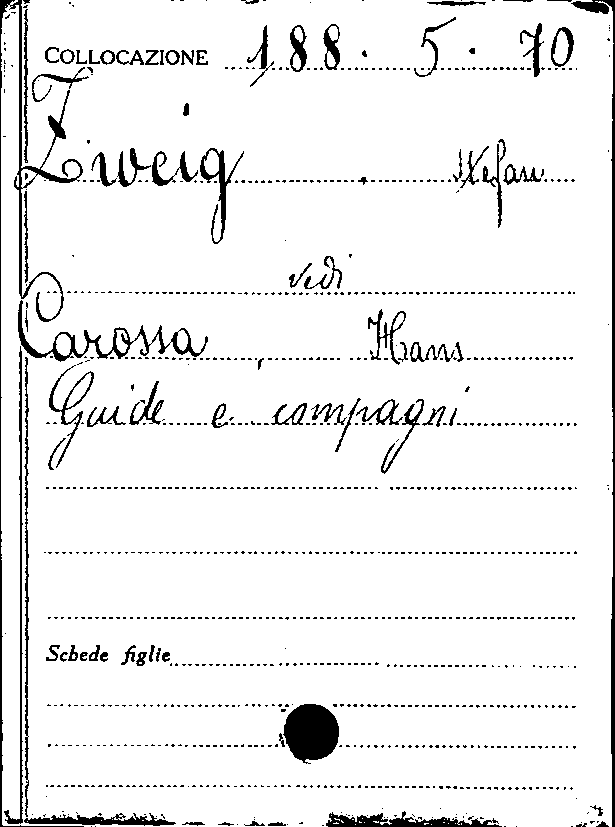 COLLOCAZIONE 188. 5. 70
Zweig, Stefan
vedi
Carossa, Hans
Guide e compagni
Schede figlie